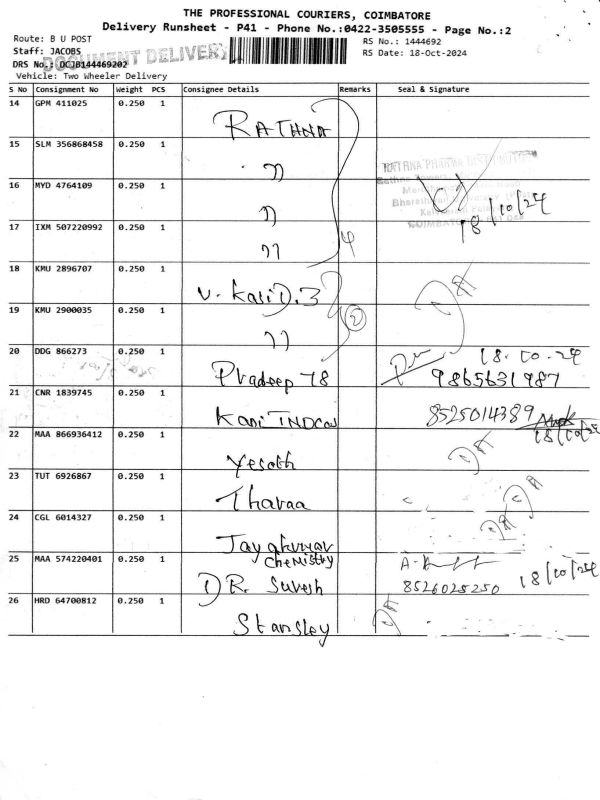 THE PROFESSIONAL COURIERS, COIMBATORE
Delivery Runsheet - P41 - Phone No.:0422-3505555 - Page No.:2
Route: B U POST
RS No.: 1444692
Staff: JACOBS
DOCUMENT DELIVERY
RS Date: 18-Oct-2024
DRS No.: DCJB144469202
Vehicle: Two Wheeler Delivery
S No Consignment No Weight PCS Consignee Details Remarks Seal & Signature
14 GPM 411025 0.250 1 RATHNA
15 SLM 356868458 0.250 1 "
RATHNA PHARMA
16 MYD 4764109 0.250 1 "
18/10/24
17 IXM 507220992 0.250 1 "
4
18 KMU 2896707 0.250 1 V. Kasi D. 3
19 KMU 2900035 0.250 1 " 2
20 DDG 866273 0.250 1 Pradeep 78 18.10.24
9865631987
21 CNR 1839745 0.250 1 Kani 8525014389
18/10/24
22 MAA 866936412 0.250 1
23 TUT 6926867 0.250 1 Tharaa
24 CGL 6014327 0.250 1 Jayakumar
Chemistry
25 MAA 574220401 0.250 1 DR. Suresh 8526025250 18/10/24
26 HRD 64700812 0.250 1 Stansley